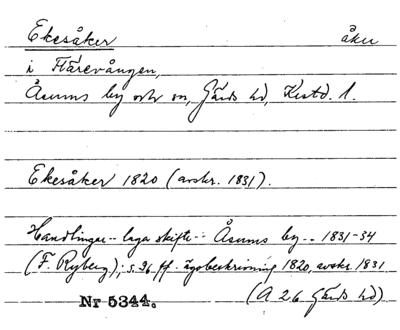 Ekesåker åker
i Härevången,
Åsums by och sn, Gärds hd, Krstd. l.
Ekesåker 1820 (avskr. 1831).
Handlingar -- laga skifte -- Åsums by -- 1831-34
(F. Ryberg); s. 96 ff. ägobeskrivning 1820, avskr. 1831
Nr 5344. (A 26 Gärds hd)